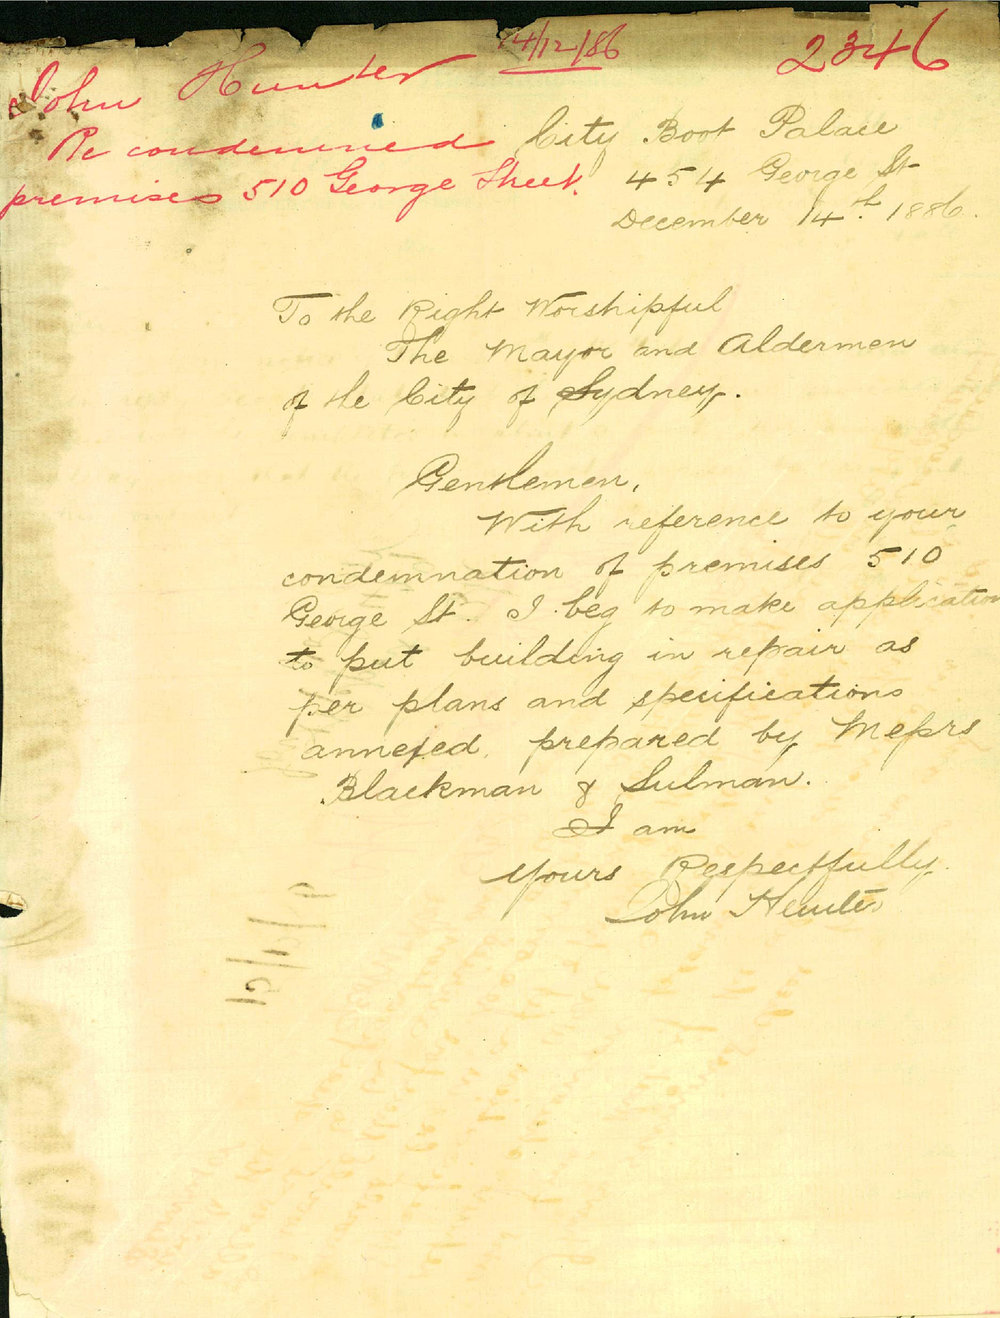 John Hunter
14/12/86
2346
Re condemned
premises 510 George Street.
City Boot Palace
454 George St
December 14th 1886.
To the Right Worshipful
The Mayor and Aldermen
of the City of Sydney.
Gentlemen,
With reference to your
condemnation of premises 510
George St. I beg to make application
to put building in repair as
per plans and specifications
annexed, prepared by Messrs
Blackman & Sulman.
I am
Yours Respectfully
John Hunter